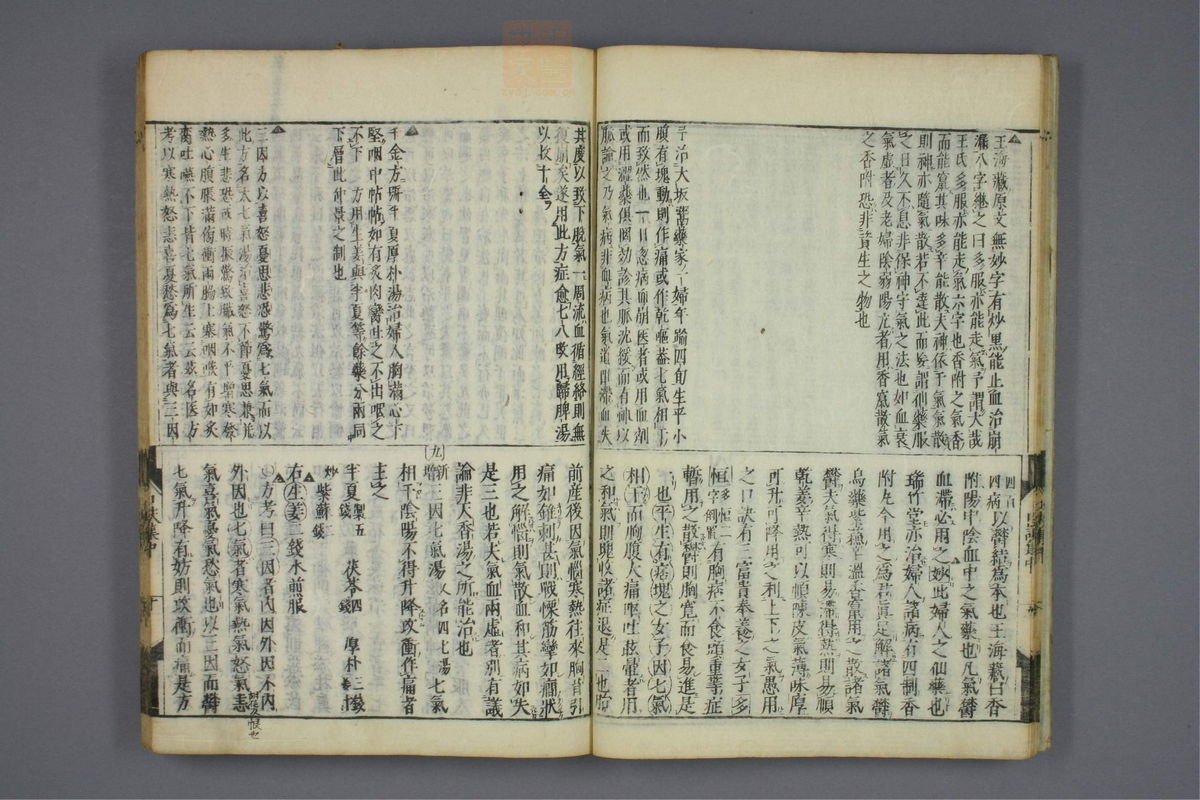 王海藏原文無妙字有炒黑能止血治崩
漏八字繼之曰多服亦能走氣予謂大哉
王氏多服亦能走氣六字也香附之氣香
而能竄其味多辛能散夫神依于氣氣散
則神亦隨氣散若不達此而妄謂利藥服
之日久不息非保神守氣之法也如血衰
氣虛者及老婦陰弱陽亢者用香竄散氣
之香附恐非資生之物也
予治大坂賣藥家一婦年踰四旬生平小
腹有塊動則作痛或作乾嘔蓋七氣相干
而致然也一日忽病血崩医者或用血劑
或用澀藥俱罔効診其脈沈緩而有神以
脈論之乃氣病非血病也氣道即滯血失
四百
四病以鬱結為本也王海藏曰香
附陽中陰血中之氣藥也凡氣鬱
血滯心用之妙此婦人之仙藥也
瑞竹堂亦治婦人諸病有四制香
附丸今用之為君真足解諸氣鬱
烏藥紫穩性溫香竄用之散諸氣
鬱夫氣得寒則易滯得熱則易順
乾姜辛熱可以頓陳皮氣薄味厚
可升可降用之利上下之氣愚用
之口訣有三富貴奉養之女子多
恒多恒二字綱着有胸痞不食頭重等症
暫用之散鬱則胸寬而食易進是
一也平生有痞塊之女子因七氣
相干而胸腹大痛嘔吐眩暈者用
之和氣則典收諸症退是二也皆
其度以致下脫氣一周流血循經絡則無
復崩矣遂用此方症愈七八後用歸脾湯
以收十全
千金方所半夏厚朴湯治婦人胸滿心下
堅咽中帖帖如有炙肉臠吐之不出咽之
不下一方用生姜與半夏等餘藥分兩同
下層此仲景之制也
三因方以喜怒憂思悲恐驚為七氣而以
此方名大七氣湯治喜怒不節憂思兼并
多生悲恐或時振驚致臟氣不平增寒發
熱心腹脹滿傍衝兩脇上塞咽喉有如炙
臠吐嚥不下皆七氣所生云云茲名医方
考以寒熱怒恚喜憂愁為七氣者與三因
前產後因氣惱寒熱往來胸背引
痛如錐刺甚則戰慄筋攣如癇狀
用之解惱則氣散血和其病如失
是三也若夫氣血兩虛者別有議
論非大香湯之所能治也
〔九〕新增三因七氣湯又名四七湯七氣
相干陰陽不得升降攻衝作痛者
主之
半夏製五錢 茯苓四錢 厚朴三錢姜
炒 紫蘇錢
右生姜三錢水煎服
○方考曰三因者內因外因不內
外因也七氣者寒氣熱氣怒氣恚
氣喜氣憂氣愁氣也以三因而鬱
七氣升降有妨則攻衝而痛是方